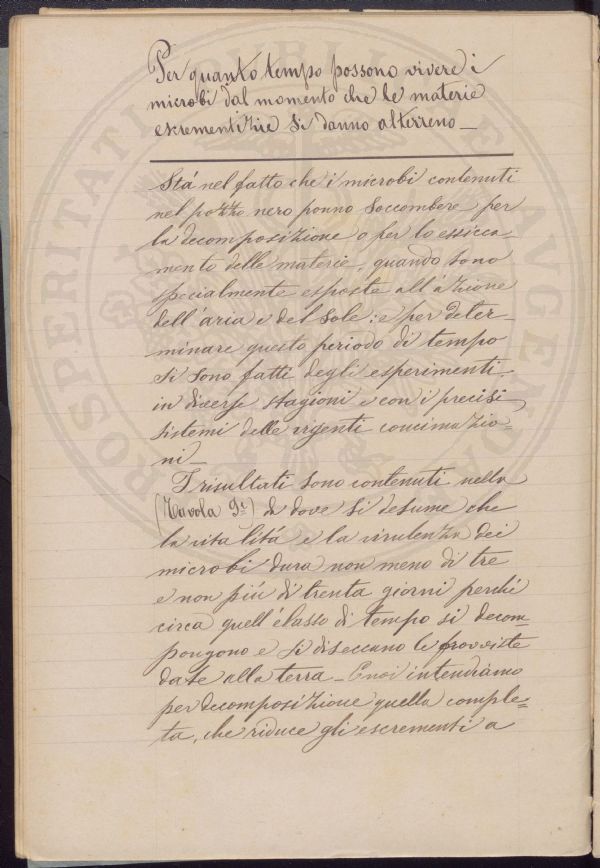 Per quanto tempo possono vivere i
microbi dal momento che le materie
escrementizie si danno al terreno_
Stá nel fatto che i microbi contenuti
nel pozzo nero ponno soccombere per
la decomposizione o per lo essicca
mento delle materie, quando sono
specialmente esposte all'azione
dell'aria e del Sole: e per deter=
minare questo periodo di tempo
si sono fatti degli esperimenti
in diverse stagioni e con i precisi
sistemi delle vigenti concimazio=
ni_
I risultati sono contenuti nella
(Tavola 9ª) da dove si desume che
la vitalitá e la virulenza dei
microbi dura non meno di tre
e non piú di trenta giorni perchè
circa quell'elasso di tempo si decom=
pongono e si diseccano le provviste
date alla terra_ E noi intendiamo
per decomposizione quella comple=
ta, che riduce gli escrementi a
PROSPERITATI PUBLICAE AUGENDAE